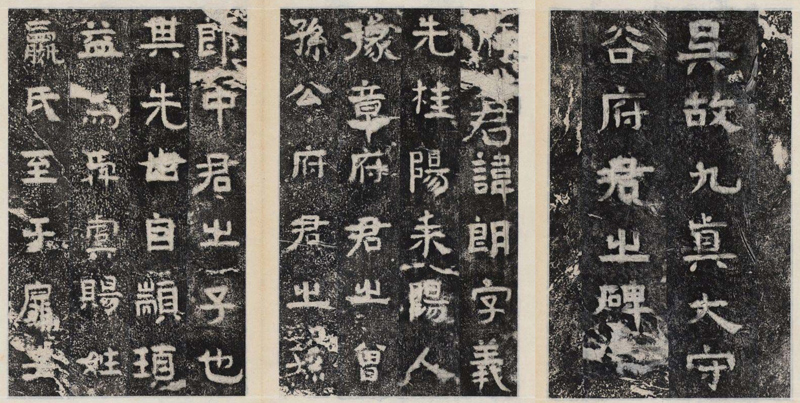 吳故九真大守
谷府君之碑
府君諱朗字義
先桂陽耒陽人
豫章府君之曾
孫公府君之孫
郎中君之子也
其先世自顓頊
益為舜虞賜姓
嬴氏至于